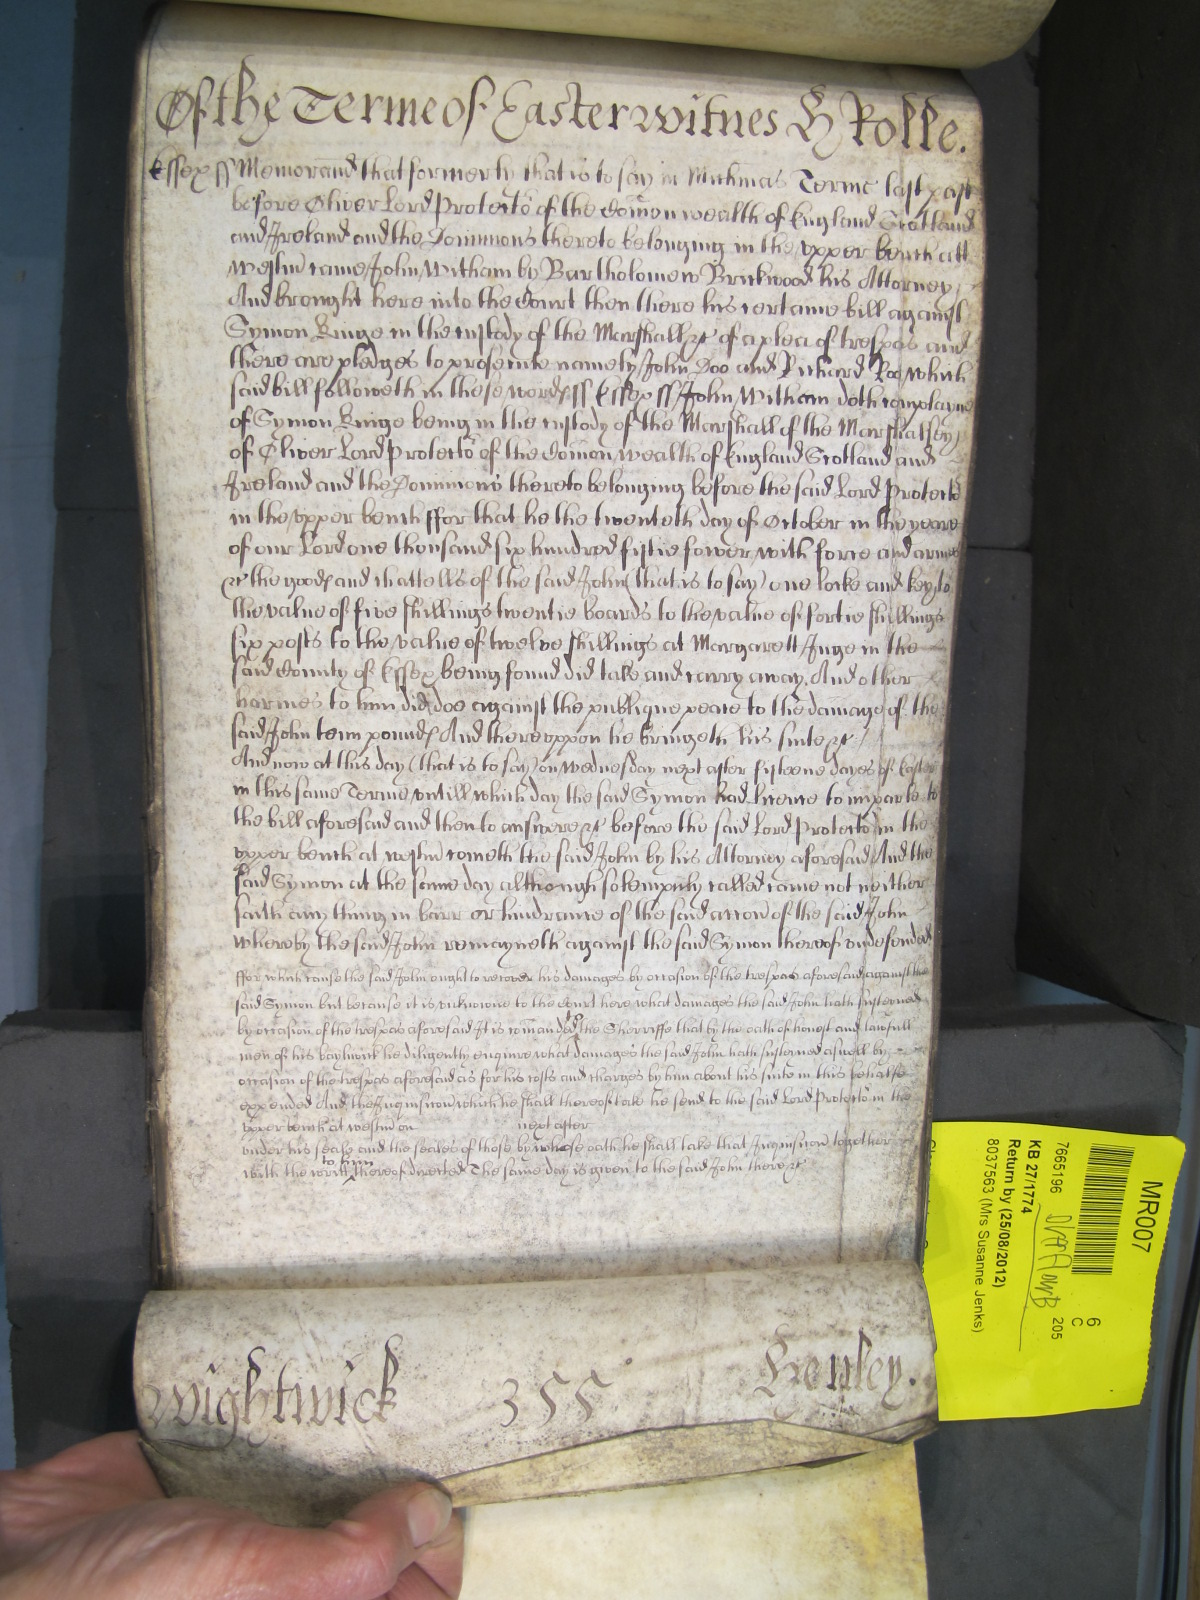 Of the Terme of Easter witnes H Rolle.
Essex ss Memorand that formerly that is to say in Michmas Terme last past
before Oliver Lord Protector of the Comon wealth of England Scotland
and Ireland and the Dominions thereto belonging in the upper bench att
Westm came John Witham by Bartholomew Brickwood his Attorney
And brought here into the Court then there his certaine bill against
Symon Ringe in the custody of the Marshall &c of a plea of trespas and
there are pledges to prosecute namely John Doo and Richard Roo which
said bill followeth in these words ss Essex ss John Witham doth complayne
of Symon Ringe being in the custody of the Marshall of the Marshalsey
of Oliver Lord Protector of the Comon wealth of England Scotland and
Ireland and the Dominions thereto belonging before the said Lord Protector
in the upper bench ffor that he the twenteth day of October in the yeare
of our Lord one thousand six hundred fiftie fower with force and armes
&c the goods and chattells of the said John (that is to say) one locke and key to
the value of five shillings twentie boards to the value of fortie shillings
six posts to the value of twelve shillings at Margarett Inge in the
said County of Essex being found did take and carry away. And other
harmes to him did doe against the publique peace to the damage of the
said John tenn pounds And thereuppon he bringeth his suite &c
And now at this day (that is to say) on Wednesday next after fifteene dayes of Easter
in this same Terme untill which day the said Symon had licence to imparle to
the bill aforesaid and then to answere &c before the said Lord Protector in the
upper bench at westm cometh the said John by his Attorney aforesaid And the
said Symon at the same day although solempnly called came not neither
saith any thing in barr or hindrance of the said accion of the said John
whereby the said John remayneth against the said Symon thereof undefended
ffor which cause the said John ought to recover his damages by occasion of the trespas aforesaid against the
said Symon but because it is unknowne to the Court here what damages the said John hath susteined
by occasion of the trespas aforesaid It is comanded to the Sherriffe that by the oath of honest and lawfull
men of his baylwick he diligently enquire what damages the said John hath susteined aswell by
occasion of the trespas aforesaid as for his costs and charges by him about his suite in this behalfe
expended And the Inquisicion which he shall thereof take he send to the said Lord Protector in the
upper bench at westm on next after
under his seale and the seales of those by whose oath he shall take that Inquisicion together
with the writt to him thereof directed The same day is given to the said John there &c
Wightwick 355 Henley.
MR007
6
C
205
7665196
KB 27/1774
Return by (25/08/2012)
8037563 (Mrs Susanne Jenks)